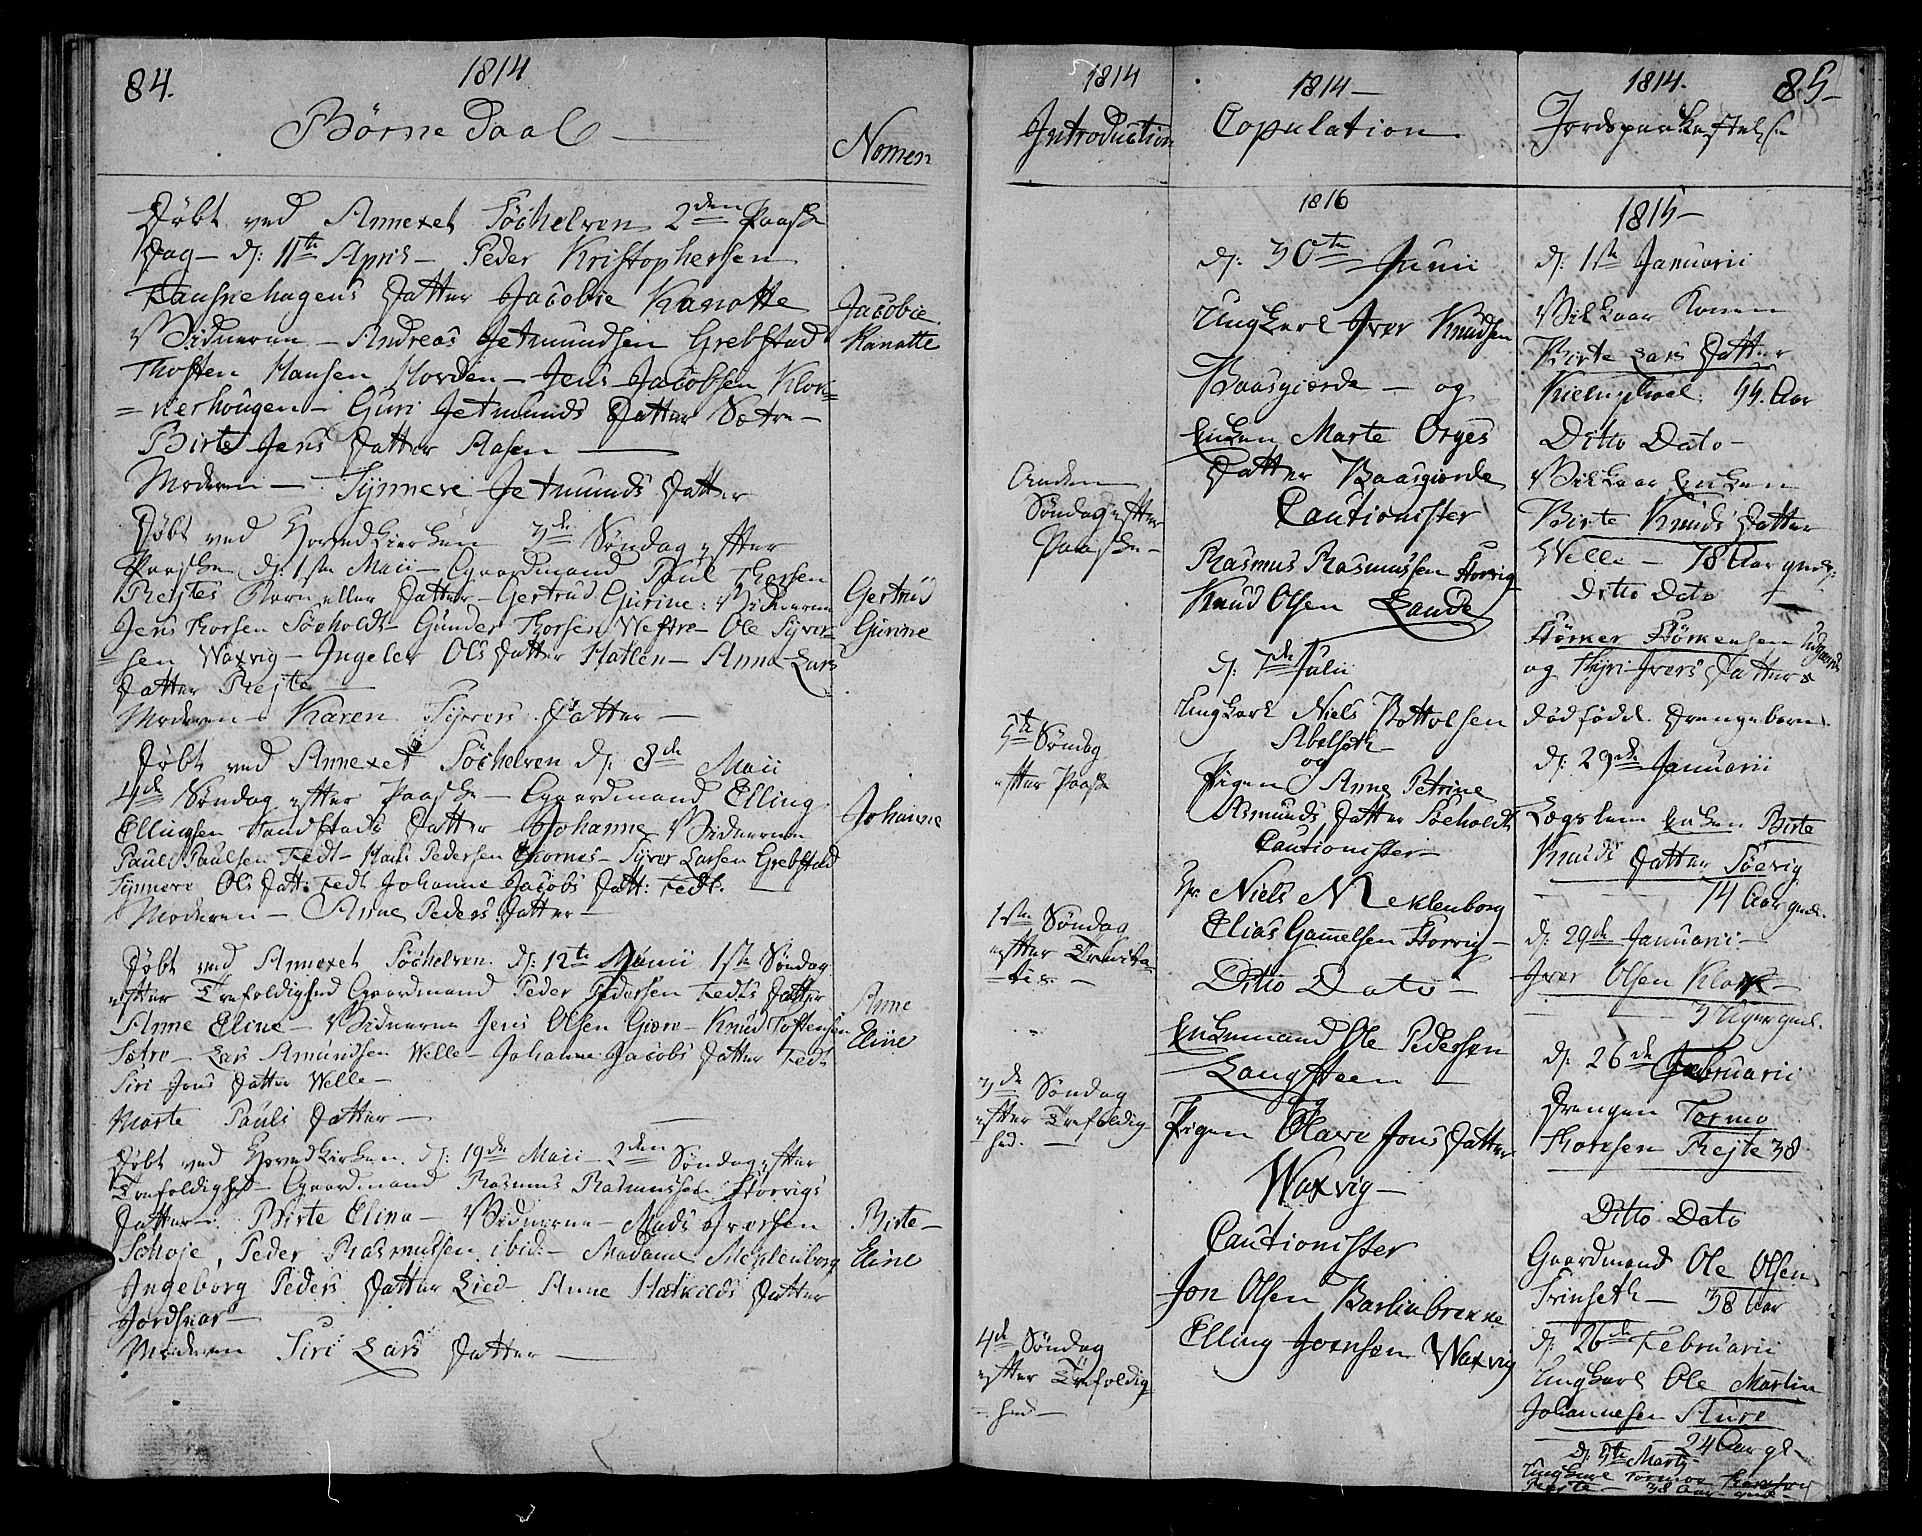 84.
1814
Börne Daab
Nomen
Döbt ved Annexet Söchelven 2den Paaske
Dag - d: 11te April - Peder Kristophersen
Datter Jacobie Kanotte
Vidnerne - Andreas Jetmundsen Grebstad
Thosten Hansen Horden - Jens Jacobsen Klok=
=nerhougen - Guri Jetmunds Datter Sætre -
Birte Jens Datter Aasen
Moderen - Synneve Jetmunds Datter
Jacobie
Kanotte
Döbt ved Hovedkierken 3de Söndag efter
Paaske d: 1ste Maii - Gaardmand Paul Thorsen
Rejtes Barn eller Datter - Gertrud Gurine: Vidnerne
Jens Thorsen Söeholdt - Gunder Thorsen Westre - Ole Syver=
=sen Waxvig - Ingeler Ols Datter Hatlen - Anna Lars
Datter Rejte
Moderen - Karen Syvers Datter -
Gertrud
Gurine
Döbt ved Annexet Söchelven d: 8de Maii
4de Söndag efter Paaske - Gaardmand Elling
Ellingsen Datter Johanne Vidnerne
Paul Paulsen Fedt - Hans Pedersen - Syver Larsen Grebstad
Synneve Ols Datt: Fedt Johanne Jacobs Datt: Fedt.
Moderen - Anne Peders Datter -
Johanne
Döbt ved Annexet Söchelven d: 12te 1ste Söndag
efter Trefoldighed Gaardmand Peder Pedersen Fedts Datter
Anne Eline - Vidnerne Jens Olsen Giære - Knud Toftensen
Sætre - Lars Amundsen Welle - Johanne Jacobs Datter Fedt
Siri Jens Datter Welle -
Marte Pauls Datter -
Anne
Eline
Döbt ved Hovedkirken d: 19de Maii - 2den Söndag efter
Trefoldighed - Gaardmand Rasmus Rasmussen Storvigs
Datter - Birte Elina - Vidnerne - Mads Iversen
Schoje, Peder Rasmussen ibid: - Madame Meklenborg
Ingeborg Peders Datter Lied - Anne Datter
Moderen Siri Lars Datter
Birte -
Eline
1814
Introduction
Anden
Söndag efter
Paaske -
5te Söndag
efter Paaske
1ste Söndag
efter Trinita=
=tis. -
3de Söndag
efter Trefoldig
hed. -
4de Söndag
efter Trefoldig
- hed -
1814 -
Copulation
1816
d: 30te Junii
Ungkarl Iver Knudsen
Baasgiærde - og
Enken Marte Orges
Datter Baasgiærde
Cautionister
Rasmus Rasmussen Storvig
Knud Olsen Sande
d: 7de Julii
Ungkarl Niels Bottolsen
Abelseth
og
Pigen Anne Petrine
Asmunds Datter Söeholdt
Cautionister -
Hr Niels Meklenborg
Elias Gamelsen Storvig -
Ditto Dato -
Enkemand Ole Pedersen
Langsteen -
og
Pigen Olave Jons Datter
Waxvig -
Cautionister
Jon Olsen Barlinbrenne
Elling Joensen Waxvig
1814.
85 -
Jordspaakastelse
1815 -
d: 1ste Januarii
Vilkaar Konen
Birte Lars Datter
Aar
Ditto Dato -
Vilkaar Enken
Birte Knuds Datter
Welle - 78 Aar gml:
Ditto Dato
Störker Störkersen
og Ivers Datters
dödfödd Drengebarn.
d: 29de Januarii
Lægslem Enken Birte
Knuds Datter Söevig
- 74 Aar gml.
d: 29de Januarii -
Iver Olsen
- 3 Uger gml.
d: 26de Februarii
Drengen Tormo
Thorsen Rejte 38
Ditto Dato
Gaardmand Ole Olsen
Frinseth - 38 Aar
d: 26de Februarii
Ungkarl Ole Martin
Johannesen Aure
24 Aar gl -
d: 5te Marty -
Ungkarl Tormoe
Rejte - 38 Aar gml -